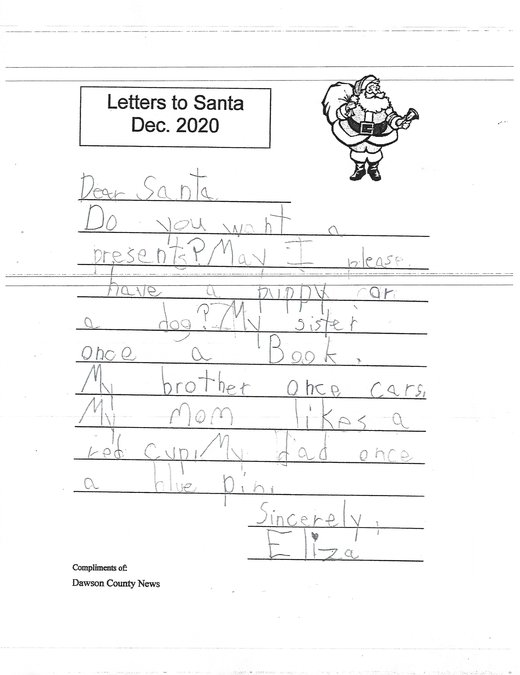 Letters to Santa
Dec. 2020
Dear Santa
Do you want a
presents? May I please
have a puppy or
a dog? My sister
once a Book.
My brother once cars.
My mom likes a
red cup. My dad once
a blue pin.
Sincerely,
Eliza
Compliments of:
Dawson County News